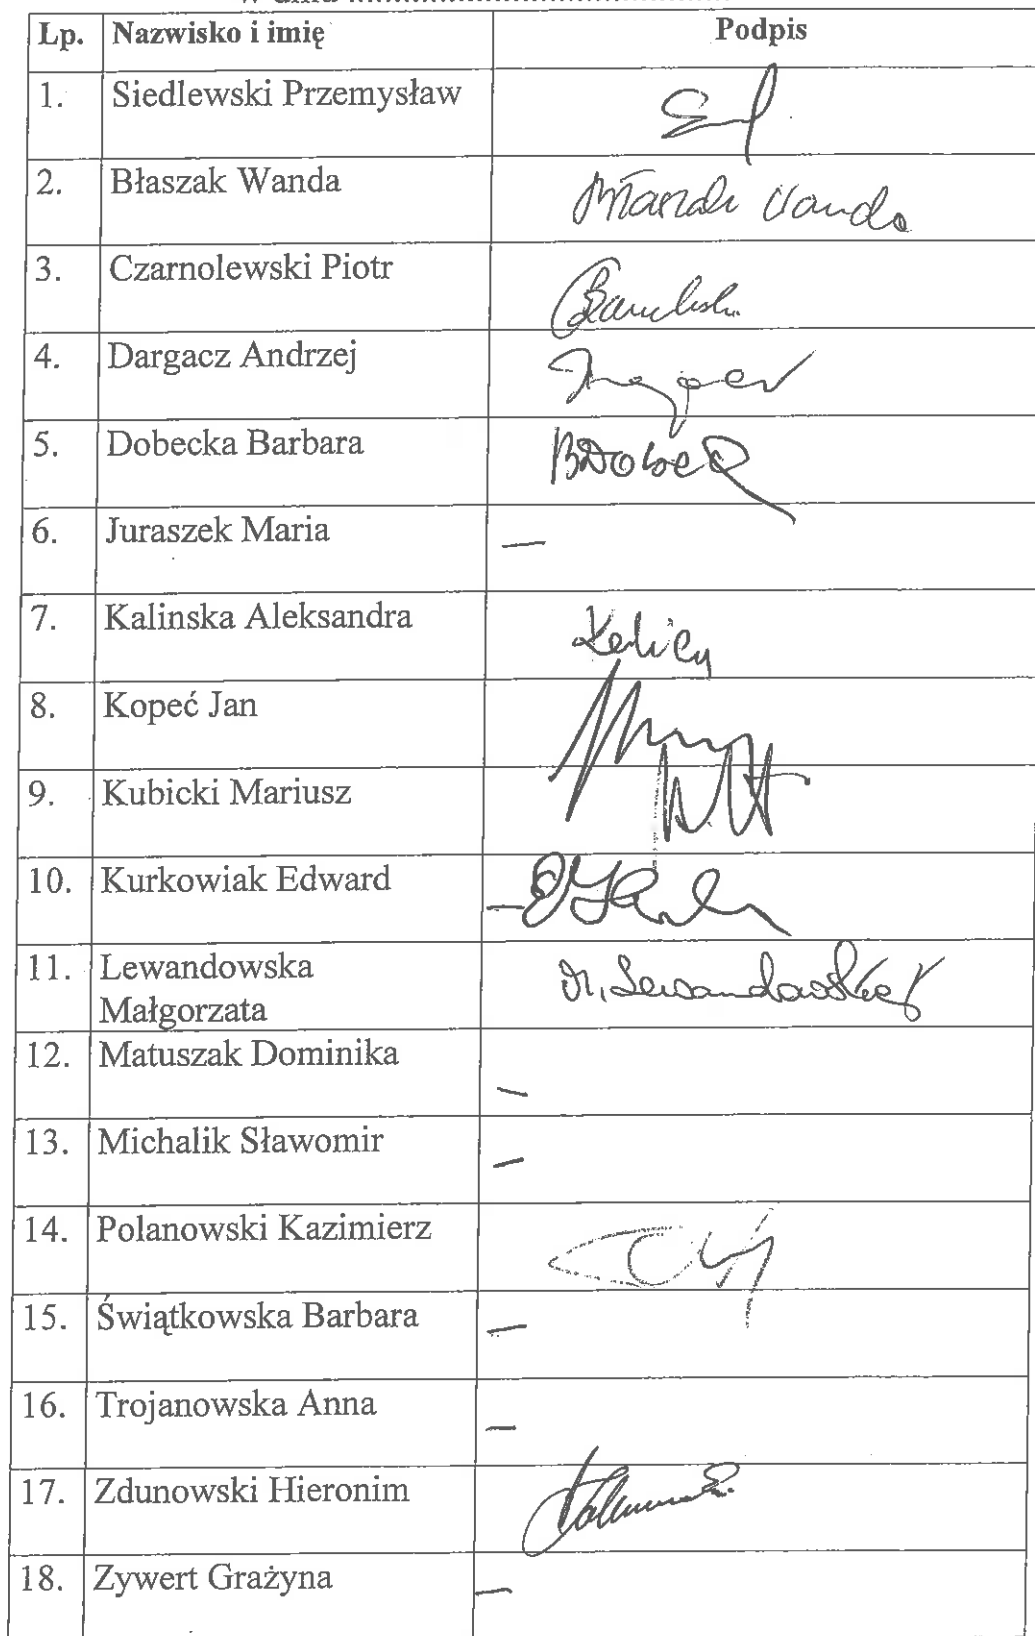 Lp. Nazwisko i imię Podpis
1. Siedlewski Przemysław
2. Błaszak Wanda Błaszak Wanda
3. Czarnolewski Piotr
4. Dargacz Andrzej
5. Dobecka Barbara
6. Juraszek Maria —
7. Kalinska Aleksandra
8. Kopeć Jan
9. Kubicki Mariusz
10. Kurkowiak Edward —
11. Lewandowska M. Lewandowska
Małgorzata
12. Matuszak Dominika —
13. Michalik Sławomir —
14. Polanowski Kazimierz
15. Świątkowska Barbara —
16. Trojanowska Anna —
17. Zdunowski Hieronim
18. Zywert Grażyna —